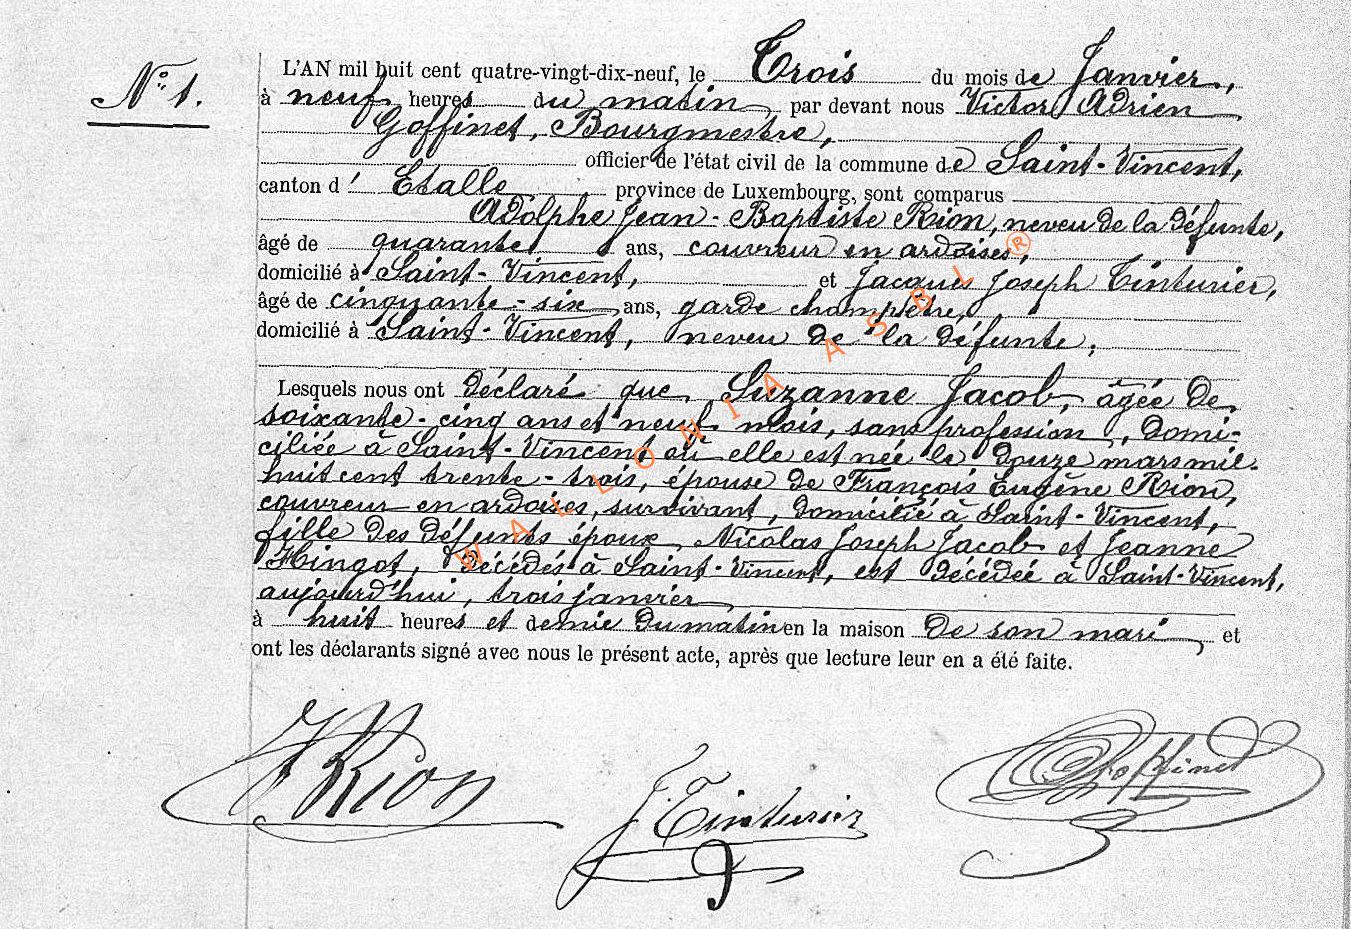 N° 1.
L'AN mil huit cent quatre-vingt-dix-neuf, le Trois du mois de Janvier,
à neuf heures du matin, par devant nous Victor Adrien
Goffinet, Bourgmestre,
officier de l'état civil de la commune de Saint-Vincent,
canton d' Etalle province de Luxembourg, sont comparus
Adolphe Jean-Baptiste Rion, neveu de la défunte,
âgé de quarante ans, couvreur en ardoises,
domicilié à Saint-Vincent, et Jacques Joseph Tinturier,
âgé de cinquante-six ans, garde champêtre,
domicilié à Saint-Vincent, neveu de la défunte;
Lesquels nous ont déclaré que Suzanne Jacob, âgée de
soixante-cinq ans et neuf mois, sans profession, domi-
ciliée à Saint-Vincent où elle est née le douze mars mil
huit cent trente-trois, épouse de François Eugène Rion,
couvreur en ardoises, survivant, domicilié à Saint-Vincent,
fille des défunts époux Nicolas Joseph Jacob et Jeanne
Hingot, décédés à Saint-Vincent, est décédée à Saint-Vincent,
aujourd'hui, trois janvier
à huit heures et demie du matin en la maison de son mari et
ont les déclarants signé avec nous le présent acte, après que lecture leur en a été faite.
Rion
J. Tinturier
Goffinet
WALLONIA ASBL ®